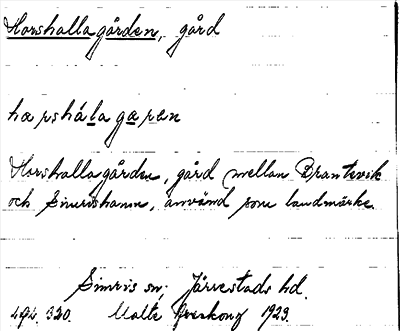 Horshallagården, gård
hœrshálagœren
Horshallagården, gård mellan Brantevik
och Simrishamn, använd som landmärke.
Simris sn, Järrestads hd.
494. 320. Malte Överkong 1923.